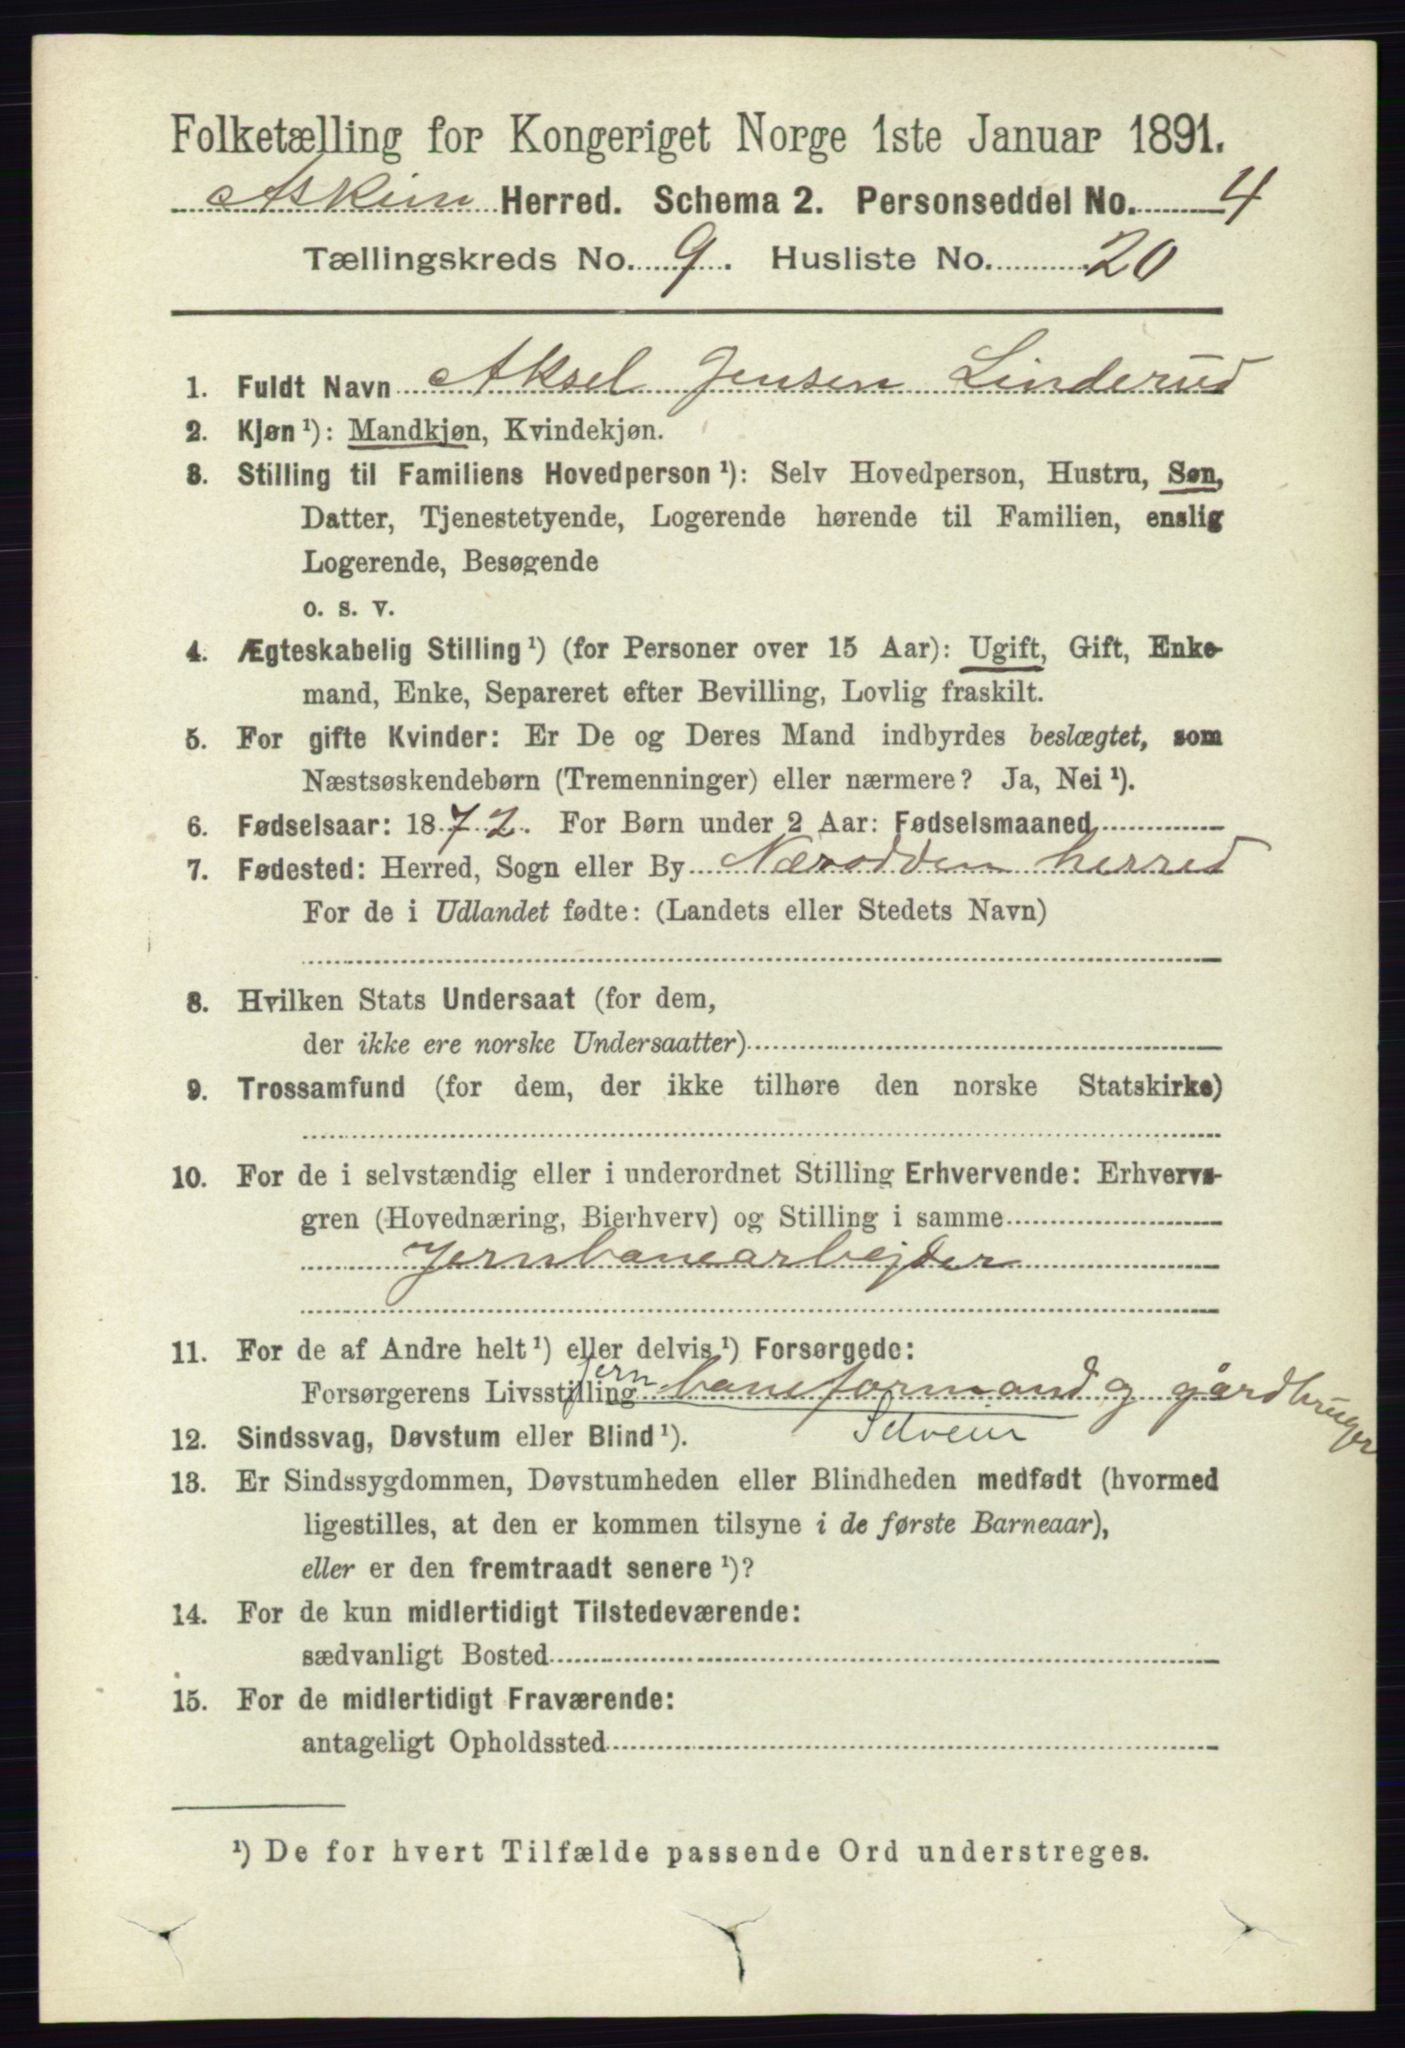 Folketælling for Kongeriget Norge 1ste Januar 1891.
Askim Herred. Schema 2. Personseddel No. 4
Tællingskreds No. 9. Husliste No. 20
1. Fuldt Navn Aksel Jensen Linderud
2. Kjøn¹): Mandkjøn, Kvindekjøn.
3. Stilling til Familiens Hovedperson¹): Selv Hovedperson, Hustru, Søn,
Datter, Tjenestetyende, Logerende hørende til Familien, enslig
Logerende, Besøgende
o. s. v.
4. Ægteskabelig Stilling¹) (for Personer over 15 Aar): Ugift, Gift, Enke-
mand, Enke, Separeret efter Bevilling, Lovlig fraskilt.
5. For gifte Kvinder: Er De og Deres Mand indbyrdes beslægtet, som
Næstsøskendebørn (Tremenninger) eller nærmere? Ja, Nei¹).
6. Fødselsaar: 1872. For Børn under 2 Aar: Fødselsmaaned
7. Fødested: Herred, Sogn eller By Næsodden herred
For de i Udlandet fødte: (Landets eller Stedets Navn)
8. Hvilken Stats Undersaat (for dem,
der ikke ere norske Undersaatter)
9. Trossamfund (for dem, der ikke tilhøre den norske Statskirke)
10. For de i selvstændig eller i underordnet Stilling Erhvervende: Erhvervs-
gren (Hovednæring, Bierhverv) og Stilling i samme
Jernbanearbejder
11. For de af Andre helt¹) eller delvis¹) Forsørgede:
Forsørgerens Livsstilling Jernbaneformand og gårdbruger
Selveier
12. Sindssvag, Døvstum eller Blind¹).
13. Er Sindssygdommen, Døvstumheden eller Blindheden medfødt (hvormed
ligestilles, at den er kommen tilsyne i de første Barneaar),
eller er den fremtraadt senere¹)?
14. For de kun midlertidigt Tilstedeværende:
sædvanligt Bosted
15. For de midlertidigt Fraværende:
antageligt Opholdssted
¹) De for hvert Tilfælde passende Ord understreges.